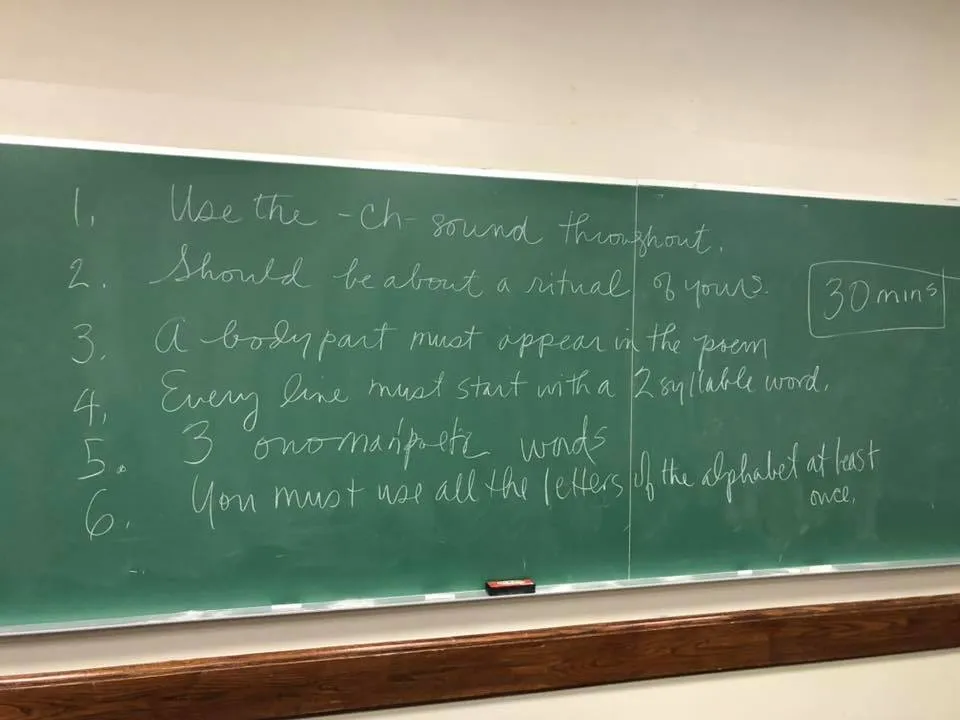 1. Use the -ch- sound throughout.
2. Should be about a ritual of yours.
30 mins
3. A body part must appear in the poem
4. Every line must start with a 2 syllable word.
5. 3 onomatopoetic words
6. You must use all the letters of the alphabet at least
once.